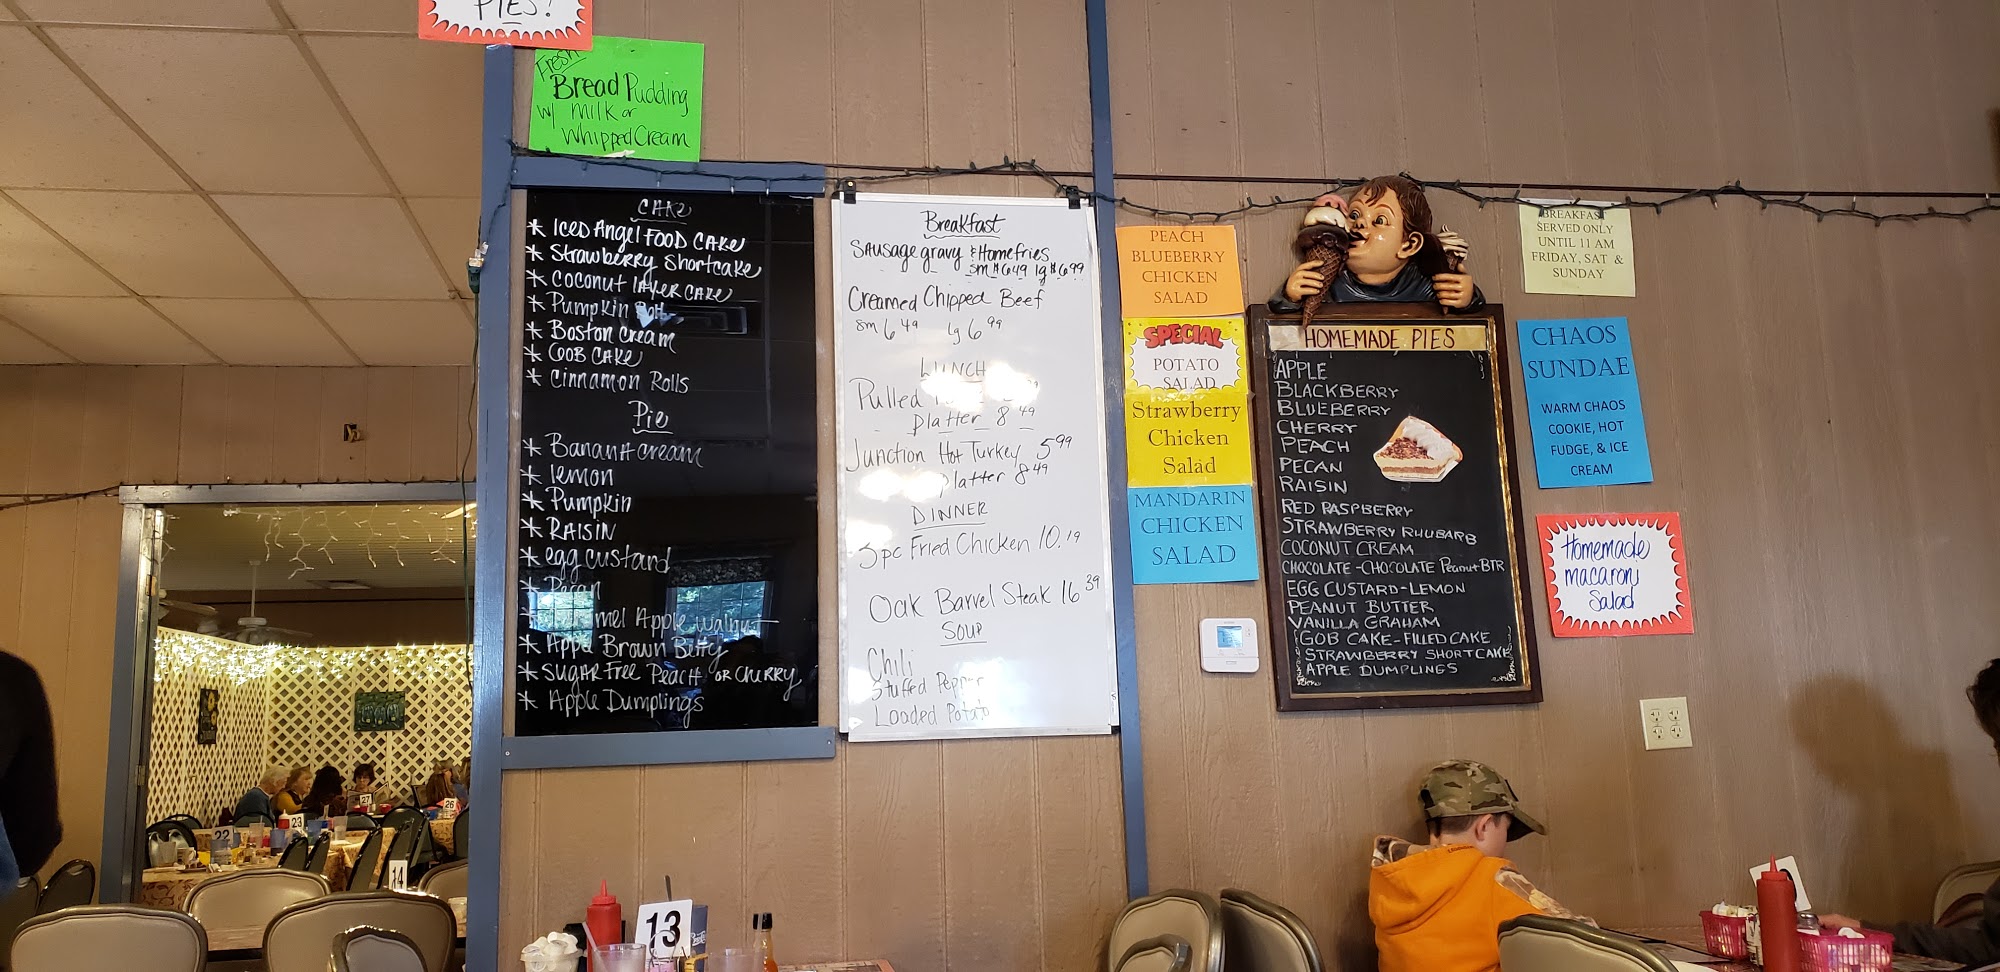 PIES!
Fresh
Bread Pudding
w/ milk or
Whipped Cream
CAKE
* Iced Angel Food Cake
* Strawberry Shortcake
* Coconut Layer Cake
* Pumpkin Roll
* Boston Cream
* Gob Cake
* Cinnamon Rolls
Pie
* Banana Cream
* lemon
* Pumpkin
* RAISIN
* egg custard
* Pecan
Apple Walnut
* Apple Brown Betty
* Sugar Free Peach or Cherry
* Apple Dumplings
Breakfast
Sausage gravy & Homefries
sm $6 49 lg $6 99
Creamed Chipped Beef
sm 6 49 lg 6 99
LUNCH
Pulled
Platter 8 49
Junction Hot Turkey 5 99
platter 8 49
DINNER
3pc Fried Chicken 10.19
Oak Barrel Steak 16 39
SOUP
Chili
Stuffed Pepper
Loaded Potato
PEACH
BLUEBERRY
CHICKEN
SALAD
SPECIAL
POTATO
SALAD
Strawberry
Chicken
Salad
MANDARIN
CHICKEN
SALAD
HOMEMADE PIES
APPLE
BLACKBERRY
BLUEBERRY
CHERRY
PEACH
PECAN
RAISIN
RED RASPBERRY
STRAWBERRY RHUBARB
COCONUT CREAM
CHOCOLATE-CHOCOLATE Peanut BTR
EGG CUSTARD-LEMON
PEANUT BUTTER
VANILLA GRAHAM
GOB CAKE-FILLED CAKE
STRAWBERRY SHORTCAKE
APPLE DUMPLINGS
BREAKFAST
SERVED ONLY
UNTIL 11 AM
FRIDAY, SAT &
SUNDAY
CHAOS
SUNDAE
WARM CHAOS
COOKIE, HOT
FUDGE, & ICE
CREAM
Homemade
macaroni
Salad
27
26
23
22
14
13